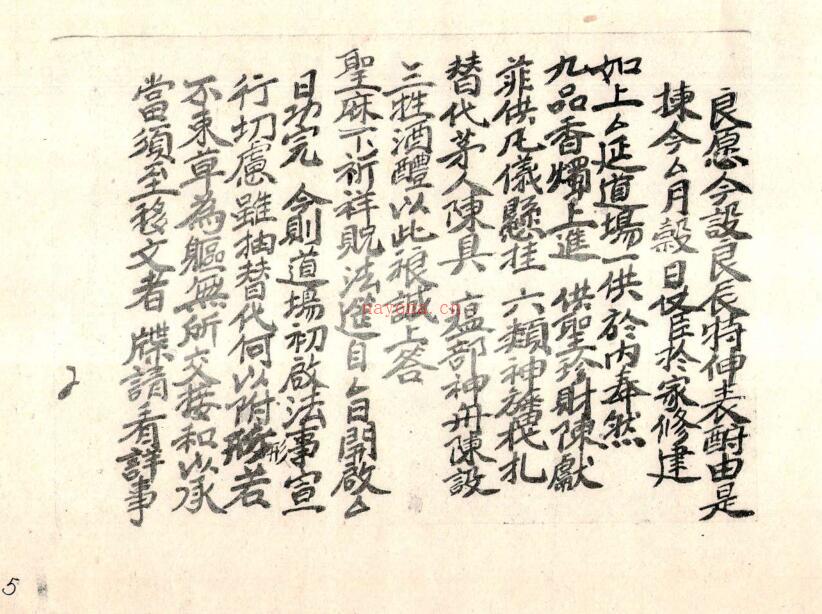 良愿今設良辰特伸表酧由是
揀今厶月穀日仗臣於家修建
如上厶延道場一供於内奉然
九品香燭上進 供聖珍財陳獻
菲供凡儀懸挂 六類神旛代扎
替代茅人陳具 瘟部神舟陳設
三牲酒醴以此衷誠上答
聖庥下祈祥貺法進自厶日開啟厶
日功完 今則道場初啟法事宣
行切慮雖抽替代何以附形若
不束草為軀無所交接和以承
當須至移文者 牒請看詳事
5
nayona.cn